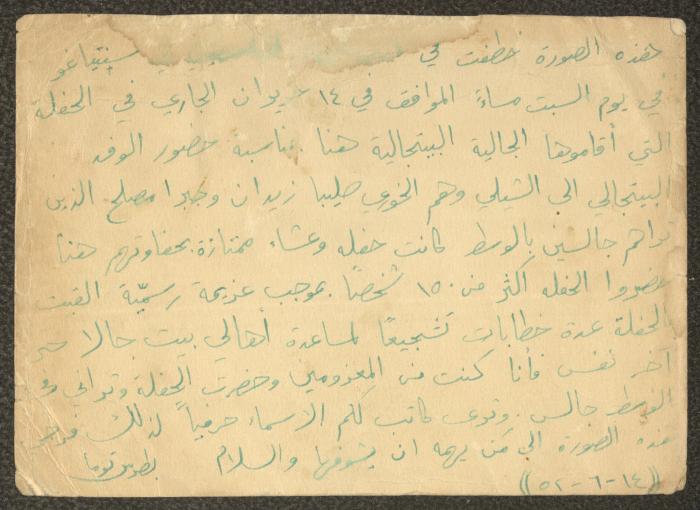 هذه الصورة خطفت في سنتياغو
في يوم السبت مساءً الموافق في ١٤ حزيران الجاري في الحفلة
التي أقاموها الجالية البيتجالية هنا بمناسبة حضور الوفد
البيتجالي الى الشيلي وهم الخوري صليبا زيدان وجبرا مصلح الذين
تراهم جالسين بالوسط كانت حفله وعشاء ممتازة بحفاوتهم هنا
حضروا الحفله أكثر من ١٥٠ شخصًا بموجب عزيمة رسميّة القيت
بالحفلة عدة خطابات تشجيعًا لمساعدة أهالي بيت جالا
آخر نفس فأنا كنت من المعزومين وحضرت الحفلة وتراني في
الوسط جالس. وترى كاتب لكم الاسماء حرفياً لذلك
هذه الصورة الى من يهمه ان يشوفها والسلام بطرس توما
((١٤-٦-٥٢))